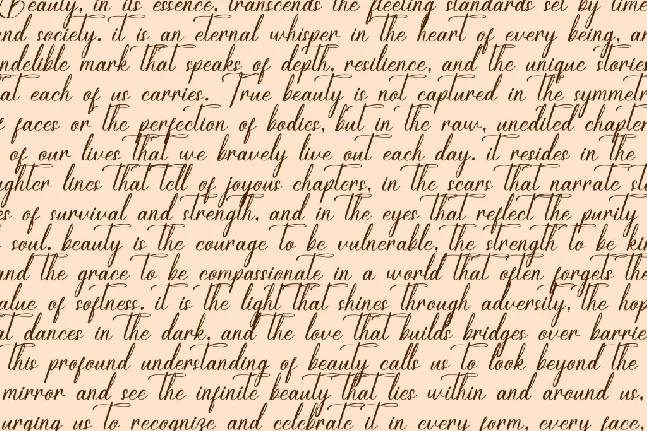 Beauty, in its essence, transcends the fleeting standards set by time
and society. it is an eternal whisper in the heart of every being, an
indelible mark that speaks of depth, resilience, and the unique stories
that each of us carries. True beauty is not captured in the symmetry
faces or the perfection of bodies, but in the raw, unedited chapter
of our lives that we bravely live out each day. it resides in the
ughter lines that tell of joyous chapters, in the scars that narrate
es of survival and strength, and in the eyes that reflect the purity
soul. beauty is the courage to be vulnerable, the strength to be kin
and the grace to be compassionate in a world that often forgets the
alue of softness. it is the light that shines through adversity, the hop
at dances in the dark, and the love that builds bridges over barrie
this profound understanding of beauty calls us to look beyond the
mirror and see the infinite beauty that lies within and around us,
urging us to recognize and celebrate it in every form, every face,